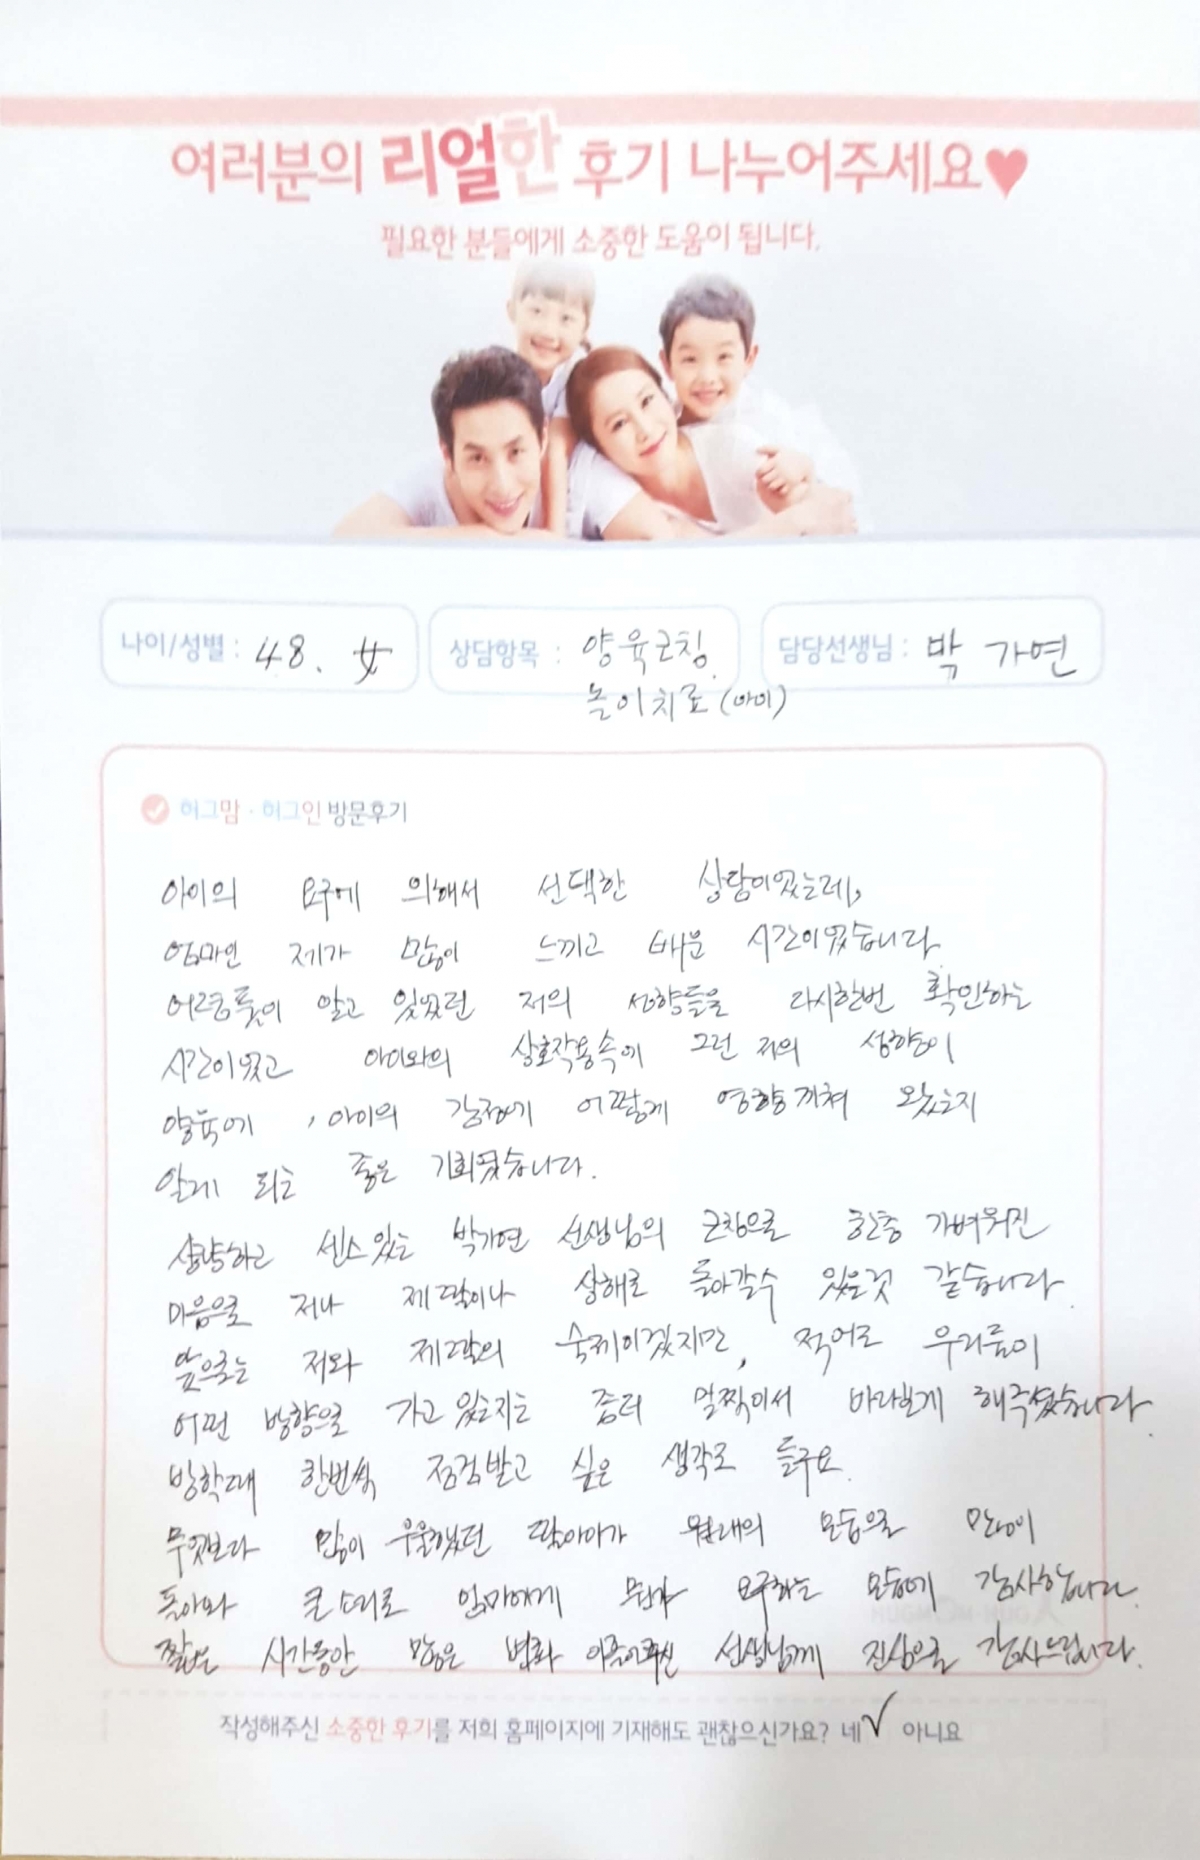 여러분의 리얼한 후기 나누어주세요♥
필요한 분들에게 소중한 도움이 됩니다.
나이/성별 : 48. 女
상담항목 : 양육코칭
놀이치료 (아이)
담당선생님 : 박 가연
허그맘·허그인 방문후기
아이의 요구에 의해서 선택한 상담이였는데,
엄마인 제가 많이 느끼고 배운 시간이였습니다.
어렴풋이 알고 있었던 저의 성향들을 다시한번 확인하는
시간이였고 아이와의 상호작용속에 그런 저의 성향이
양육에, 아이의 감정에 어떻게 영향 끼쳐 왔는지
알게 되는 좋은 기회였습니다.
상냥하고 센스있는 박가연 선생님의 코칭으로 한층 가벼워진
마음으로 저나 제 딸이나 상해로 돌아갈수 있을것 같습니다.
앞으로는 저와 제 딸의 숙제이겠지만, 적어도 우리둘이
어떤 방향으로 가고 있는지는 좀더 멀찍이서 바라보게 해주셨습니다.
방학때 한번씩 점검받고 싶은 생각도 들구요.
무엇보다 많이 우울했던 딸아이가 원래의 모습으로 많이
돌아와 큰 소리로 엄마에게 뭔가 요구하는 모습에 감사합니다.
짧은 시간동안 많은 변화 이끌어주신 선생님께 진심으로 감사드립니다.
작성해주신 소중한 후기를 저희 홈페이지에 기재해도 괜찮으신가요? 네✓ 아니요